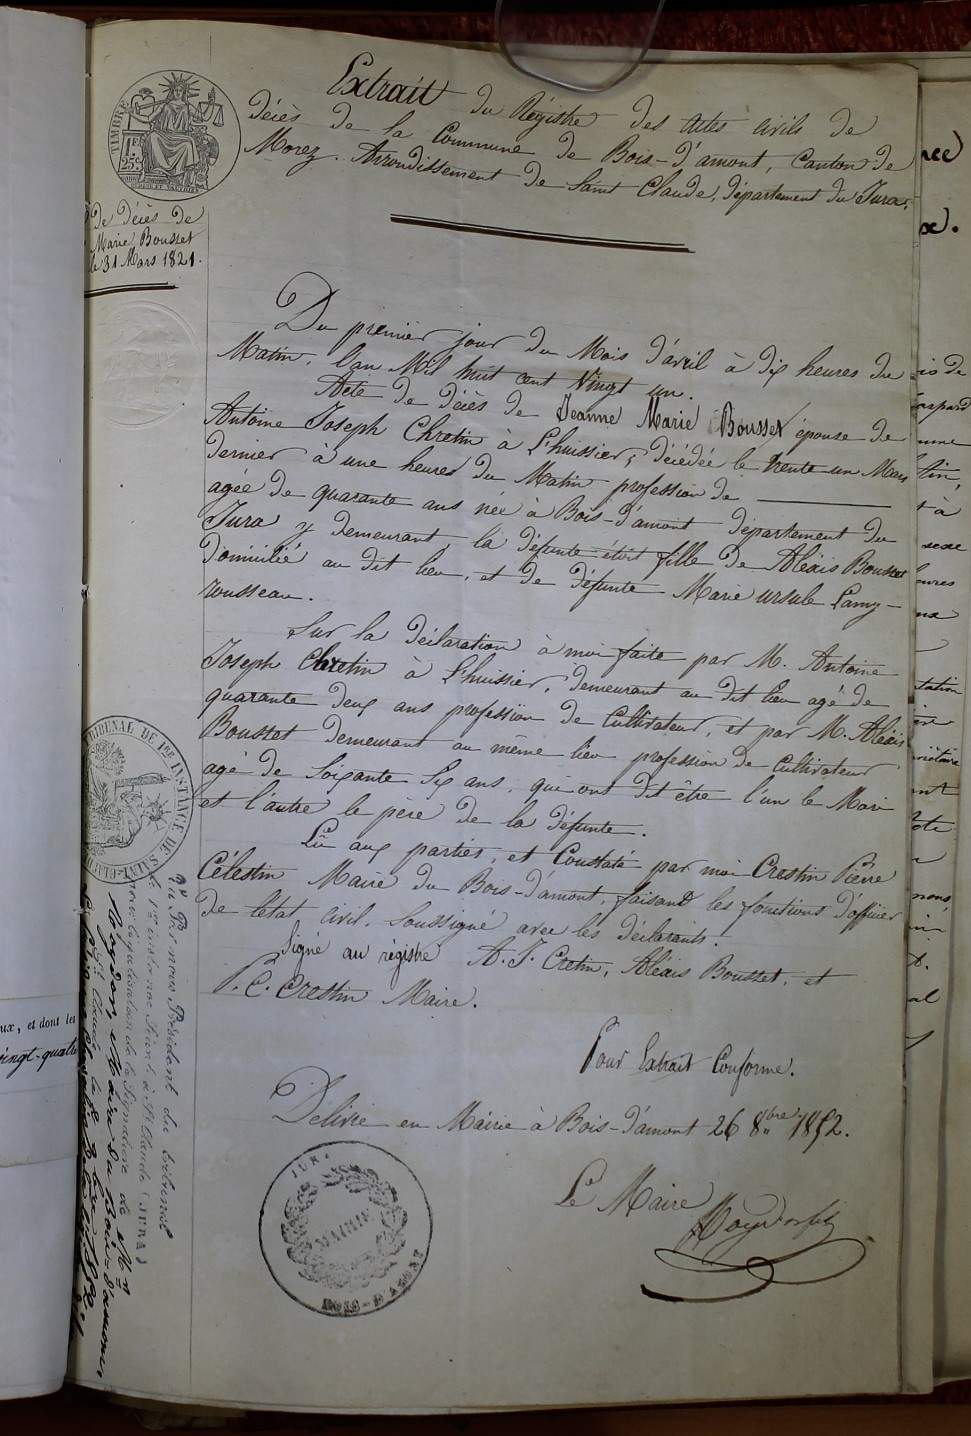 Extrait du Régistre des Actes civils de
décès de la Commune de Bois-d'amont, Canton de
Morez. Arrondissement de Saint Claude, département du Jura.
TIMBRE
1F
25c
de décès de
Marie Bousset
le 31 Mars 1821.
Du premier jour du Mois d'avril à dix heures du
Matin, l'an Mil huit cent Vingt un.
Acte de décès de Jeanne Marie Bousset épouse de
Antoine Joseph Chretin à L'huissier, décédée le trente un Mars
dernier à une heures du Matin profession de
agée de quarante ans née à Bois-d'amont département du
Jura y demeurant, la défunte étoit fille de Aléxis Bousset
domicilié au dit lieu, et de défunte Marie ursule Lamy-
rousseau.
Sur la déclaration à moi faite par M. Antoine
Joseph Chretin à L'huissier, demeurant au dit lieu agé de
quarante deux ans profession de Cultivateur, et par M. Aléxis
Bousset demeurant au même lieu profession de Cultivateur
agé de Soixante Six ans, qui ont dit être l'un le Mari
et l'autre le père de la défunte.
Lû aux parties, et Constaté par moi Crestin Pierre
Célestin Maire du Bois-d'amont, faisant les fonctions d'officier
de l'état civil, Soussigné avec les déclarants.
Signé au régistre A. J. Cretin, Aléxis Bousset, et
P. C. Crestin Maire.
Pour Extrait Conforme.
Délivré en Mairie à Bois-d'amont 26 8bre 1852.
Le Maire
JURA
MAIRIE
BOIS-D'AMONT
TRIBUNAL DE 1ere INSTANCE DE SAINT-CLAUDE
Vu Par nous Président du tribunal
de 1ere instance Séant à St Claude (JURA)
pour légalisation de la Signature de Mr
Maire du Bois-d'amont
St Claude le
ux, et dont les
vingt-quatre